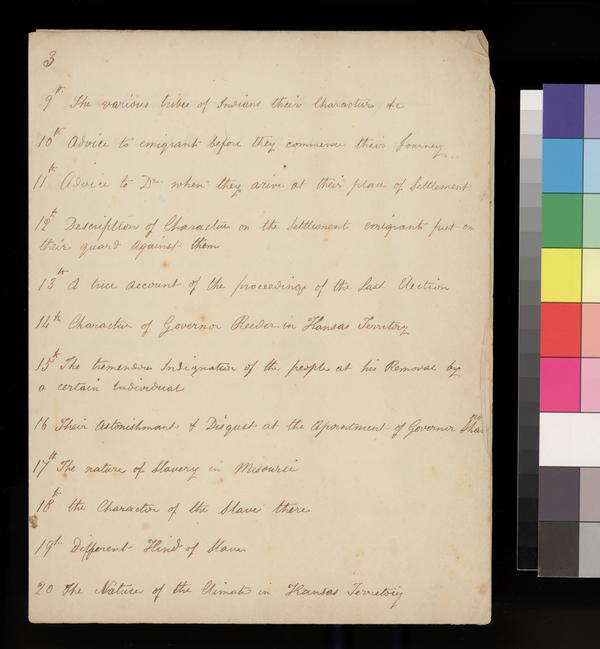 3
9th The various tribes of Indians their Character &c
10th Advice to emigrant before they commence their Journey
11th Advice to Do when they arive at their place of Settlement
12th Description of Character on the Settlement emigrants put on
their guard against them
13th A true account of the proceedings of the Last Election
14th Character of Governor Reeder in Kansas Territory
15th The tremendous Indignation of the people at his Removal by
a certain Individual
16 Their Astonishment & Disgust at the Apointment of Governor
17th The nature of Slavery in Misourie
18th the Character of the Slaves there
19th Different Kind of Slaves
20 The Nature of the Climate in Kansas Territory